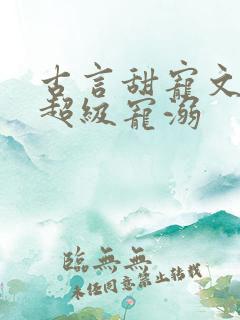 古言甜宠文
超级宠溺
臨無無
未經同意禁止转载